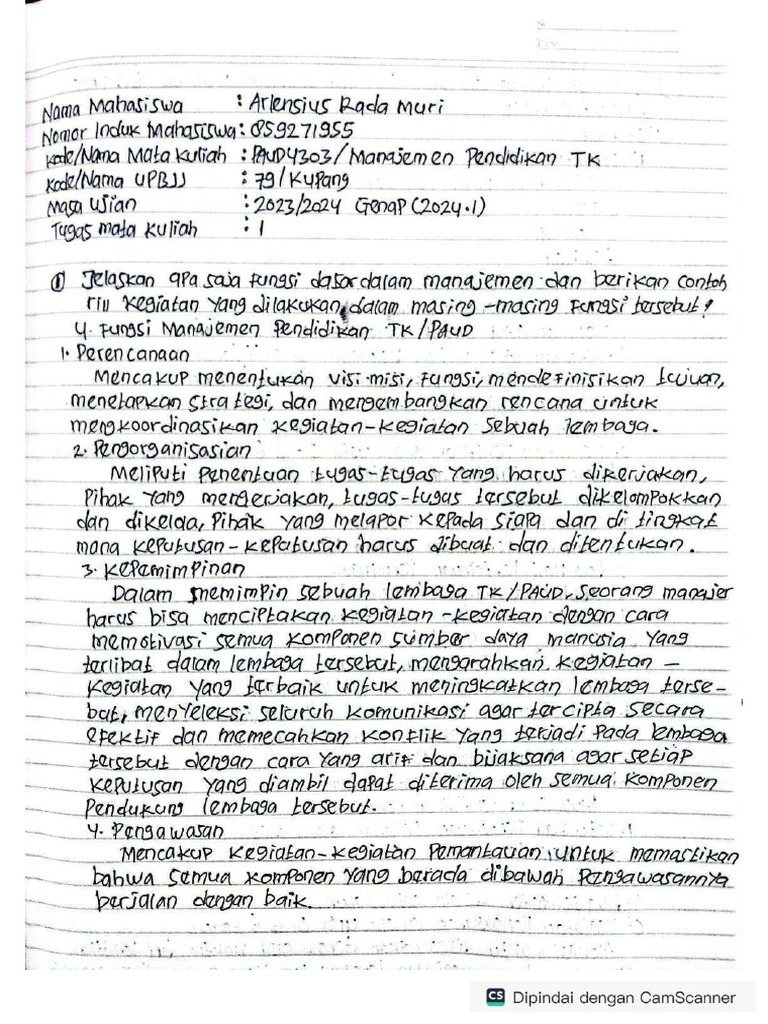 Nama Mahasiswa : Arlensius Rada Muri
Nomor Induk Mahasiswa : 859271955
Kode/Nama Mata Kuliah : PAUD4303/Manajemen Pendidikan TK
Kode/Nama UPBJJ : 79/Kupang
Masa Ujian : 2023/2024 Genap (2024.1)
Tugas mata kuliah : 1
① Jelaskan apa saja fungsi dasar dalam manajemen dan berikan contoh
riil kegiatan yang dilakukan dalam masing-masing fungsi tersebut!
4. Fungsi Manajemen Pendidikan TK/PAUD
1. Perencanaan
Mencakup menentukan visi misi, fungsi, mendefinisikan tujuan,
menetapkan strategi, dan mengembangkan rencana untuk
mengkoordinasikan kegiatan-kegiatan sebuah lembaga.
2. Pengorganisasian
Meliputi penentuan tugas-tugas yang harus dikerjakan,
Pihak yang mengerjakan, tugas-tugas tersebut dikelompokkan
dan dikelola, Pihak yang melapor kepada siapa dan di tingkat
mana keputusan-keputusan harus dibuat dan ditentukan.
3. Kepemimpinan
Dalam memimpin sebuah lembaga TK/PAUD, seorang manajer
harus bisa menciptakan kegiatan-kegiatan dengan cara
memotivasi semua komponen sumber daya manusia yang
terlibat dalam lembaga tersebut, mengarahkan kegiatan -
kegiatan yang terbaik untuk meningkatkan lembaga terse-
but, menyeleksi seluruh komunikasi agar tercipta secara
efektif dan memecahkan konflik yang terjadi pada lembaga
tersebut dengan cara yang arif dan bijaksana agar setiap
keputusan yang diambil dapat diterima oleh semua komponen
Pendukung lembaga tersebut.
4. Pengawasan
Mencakup kegiatan-kegiatan pemantauan untuk memastikan
bahwa semua komponen yang berada dibawah pengawasannya
berjalan dengan baik.
CS Dipindai dengan CamScanner